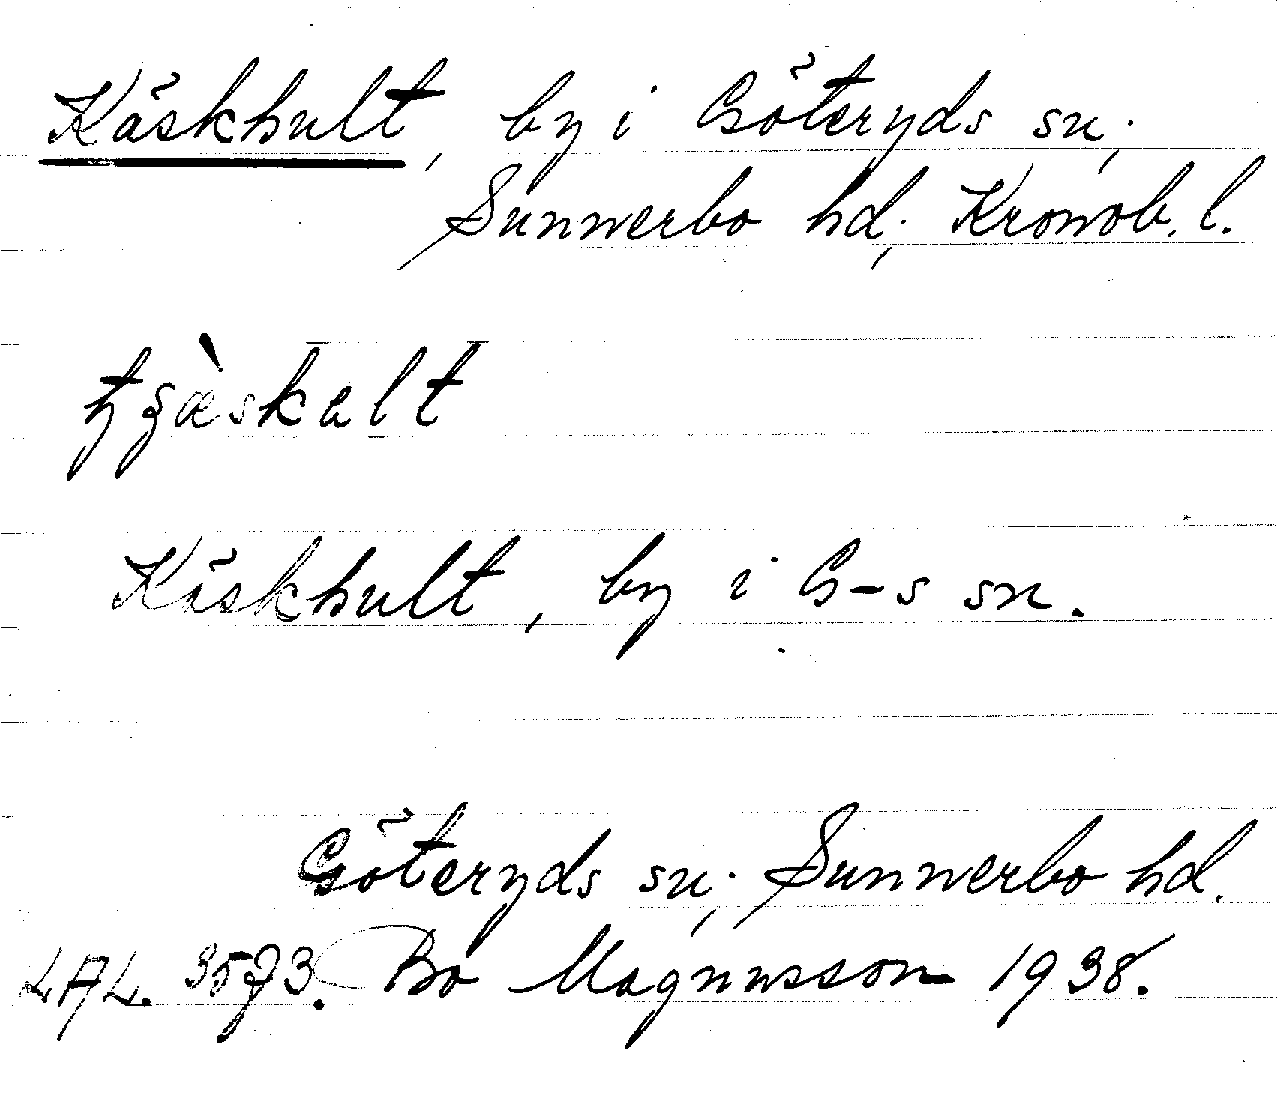 Käskhult, by i Göteryds sn;
Sunnerbo hd; Kronob. l.
Käskhult, by i G-s sn.
Göteryds sn; Sunnerbo hd.
LAL. 3573. Bo Magnusson 1938.